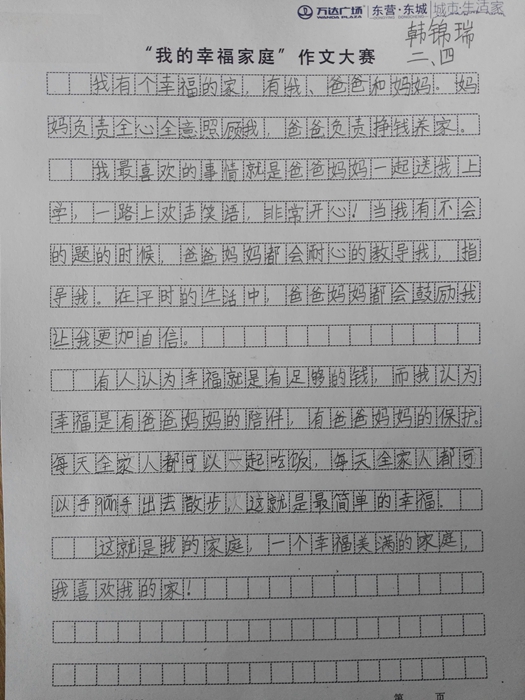 万达广场 WANDA PLAZA 东营·东城 城市生活家
韩锦瑞
二、四
“我的幸福家庭”作文大赛
我有个幸福的家，有我、爸爸和妈妈。妈
妈负责全心全意照顾我，爸爸负责挣钱养家。
我最喜欢的事情就是爸爸妈妈一起送我上
学，一路上欢声笑语，非常开心！当我有不会
的题的时候，爸爸妈妈都会耐心的教导我，指
导我。在平时的生活中，爸爸妈妈都会鼓励我
让我更加自信。
有人认为幸福就是有足够的钱，而我认为
幸福是有爸爸妈妈的陪伴，有爸爸妈妈的保护。
每天全家人都可以一起吃饭，每天全家人都可
以手qian手出去散步，这就是最简单的幸福。
这就是我的家庭，一个幸福美满的家庭，
我喜欢我的家！
第 页